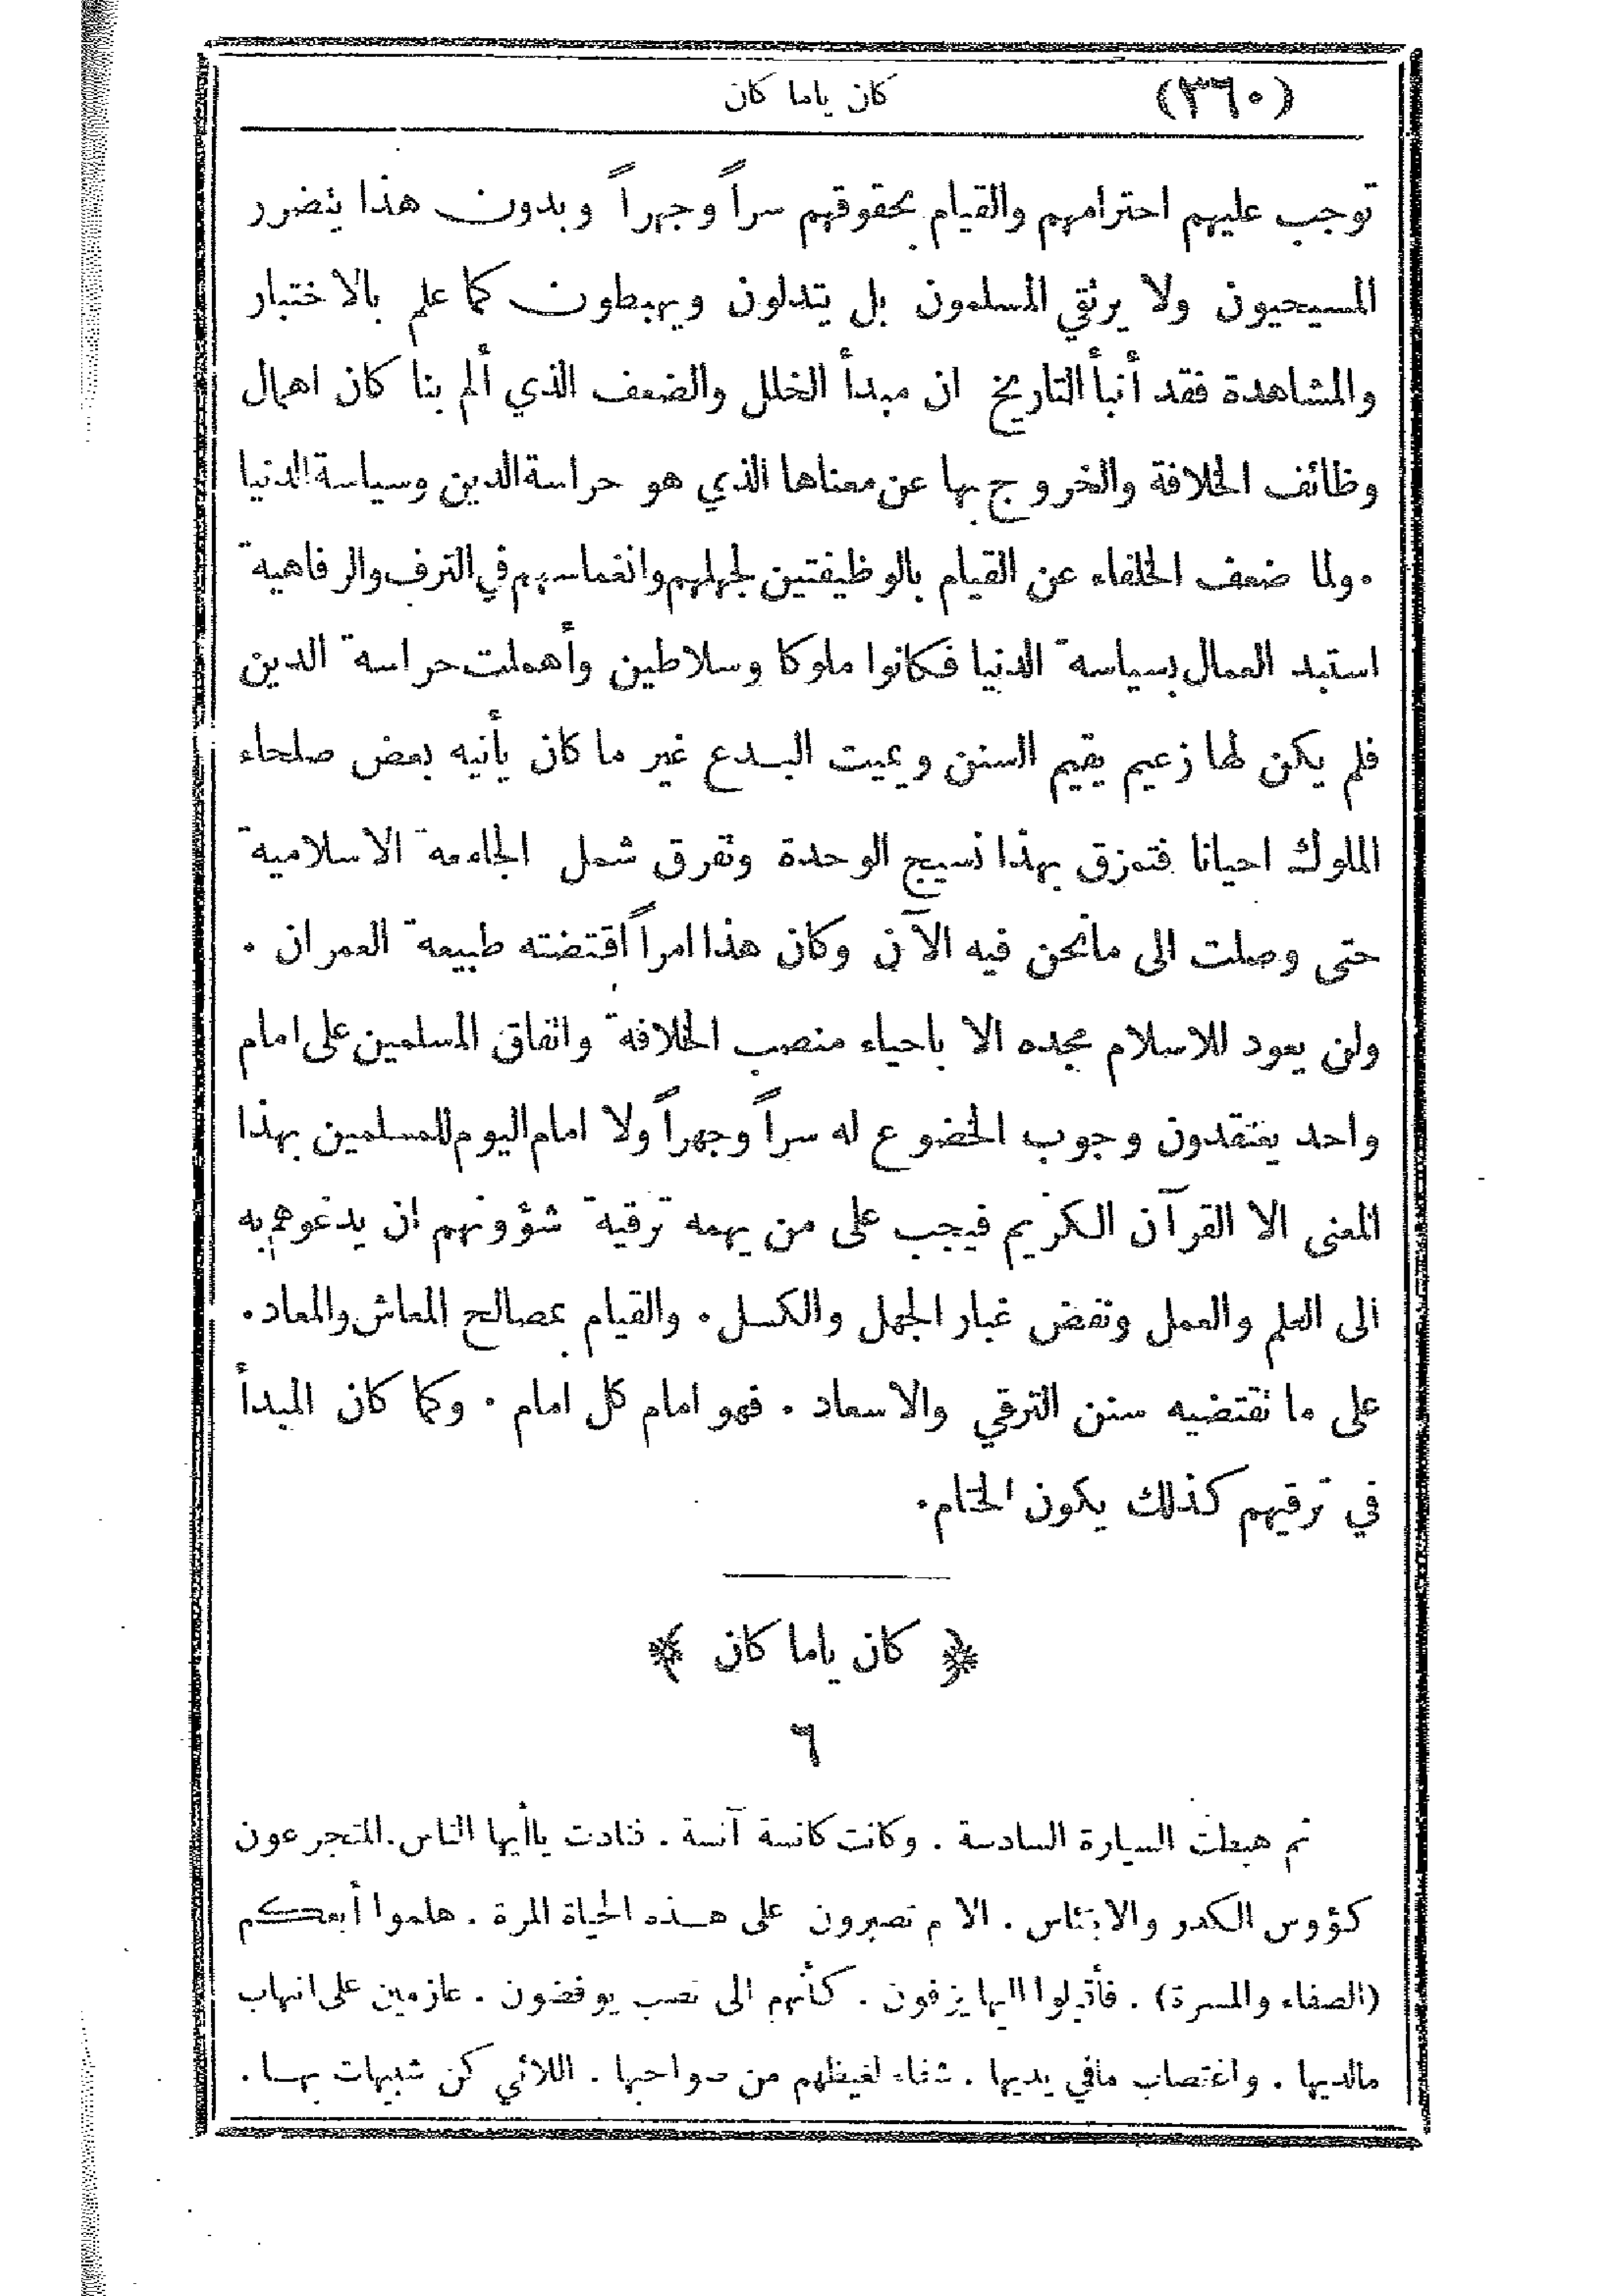 (٣٦٠) كان ياما كان
توجب عليهم احترامهم والقيام بحقوقهم سراً وجهراً وبدون هذا يتضرر
المسيحيون ولا يرتقي المسلمون بل يتدلون ويهبطون كما علم بالاختبار
والمشاهدة فقد أنبأ التاريخ ان مبدأ الخلل والضعف الذي ألم بنا كان اهمال
وظائف الخلافة والخروج بها عن معناها الذي هو حراسة الدين وسياسة الدنيا
. ولما ضعف الخلفاء عن القيام بالوظيفتين لجهلهم وانغماسهم في الترف والرفاهية
استبد العمال بسياسة الدنيا فكانوا ملوكا وسلاطين وأهملت حراسة الدين
فلم يكن لها زعيم يقيم السنن ويميت البدع غير ما كان يأتيه بعض صلحاء
الملوك احيانا فتمزق بهذا نسيج الوحدة وتفرق شمل الجامعة الاسلامية
حتى وصلت الى مانحن فيه الآن وكان هذا امراً اقتضته طبيعة العمران .
ولن يعود للاسلام مجده الا باحياء منصب الخلافة واتفاق المسلمين على امام
واحد يعتقدون وجوب الخضوع له سراً وجهراً ولا امام اليوم للمسلمين بهذا
المعنى الا القرآن الكريم فيجب على من يهمه ترقية شؤونهم ان يدعوهم به
الى العلم والعمل ونفض غبار الجهل والكسل . والقيام بمصالح المعاش والمعاد .
على ما تقتضيه سنن الترقي والاسعاد . فهو امام كل امام . وكما كان المبدأ
في ترقيهم كذلك يكون الختام .
﴿ كان ياما كان ﴾
٦
ثم هبطت السيارة السادسة . وكانت كانسة آنسة . فنادت ياأيها الناس . المتجرعون
كؤوس الكدر والابتئاس . الا م تصبرون على هذه الحياة المرة . هلموا أبعكم
(الصفاء والمسرة) . فأقبلوا اليها يزفون . كأنهم الى نصب يوفضون . عازمين على انتهاب
مالديها . واغتصاب مافي يديها . شفاء لغيظهم من صواحبها . اللائي كن شبيهات بها .